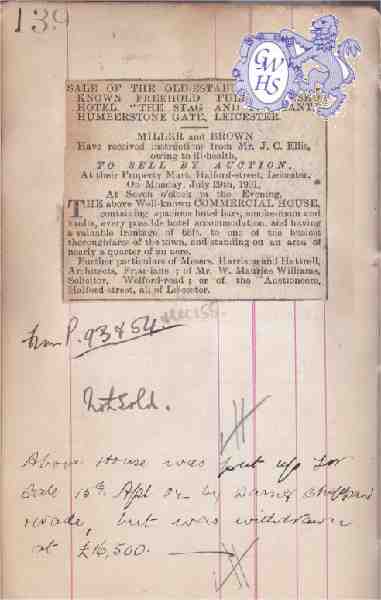 139
GWHS
SALE OF THE OLD-ESTAB
KNOWN FREEHOLD FULL
HOTEL "THE STAG AND
HUMBERSTONE GATE, LEICESTER.
MILLER and BROWN
Have received instructions from Mr. J. C. Ellis,
owing to ill-health,
TO SELL BY AUCTION,
At their Property Mart, Halford-street, Leicester,
On Monday, July 29th, 1901,
At Seven o'clock in the Evening,
THE above Well-known COMMERCIAL HOUSE,
containing spacious fitted bars, smoke-room and
vaults, every possible hotel accommodation, and having
a valuable frontage of to one of the busiest
thoroughfares of the town, and standing on an area of
nearly a quarter of an acre.
Further particulars of Messrs. Harrison and Hattrell,
Architects, Friar-lane; of Mr. W. Maurice Williams,
Solicitor, Welford-road; or of the Auctioneers,
Halford street, all of Leicester.
from P. 93 & 54. 155.
Not Sold.
Above House was put up for
Sale 15th Apl 04 by Warner Sheppard
Wade, but was withdrawn
at £16,500.